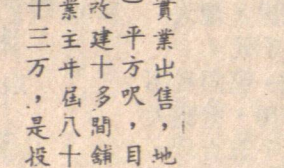 業出售，地
）平方呎，目
改建十多間舖
業主年屆八十
十三万，是投